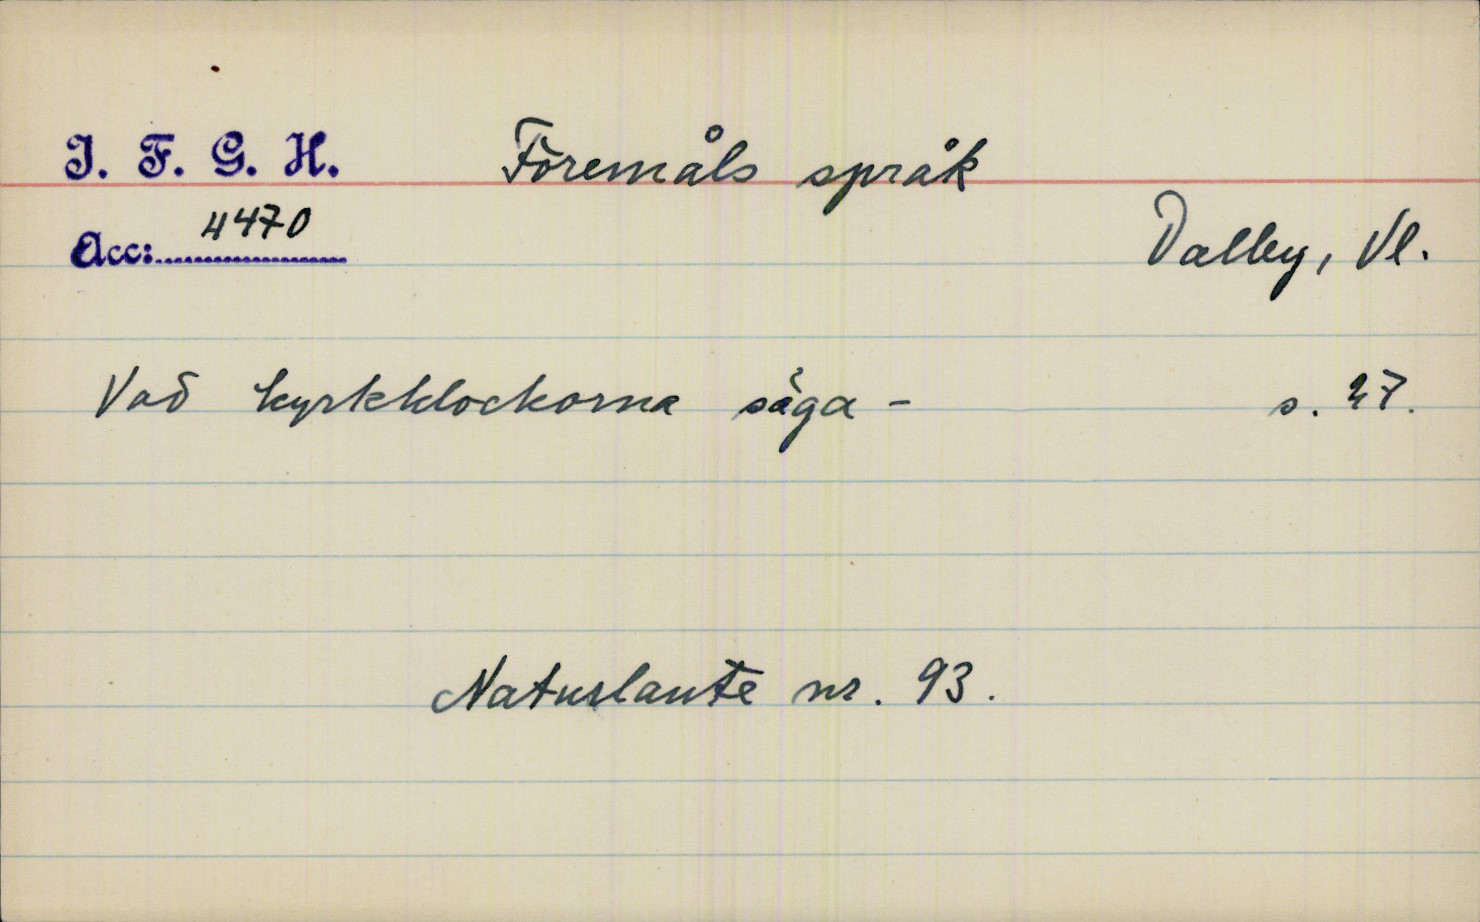 I. F. G. H.
Föremåls språk
Acc: 4470
Dalby, Vl.
Vad kyrkklockorna säga - s. 27.
Naturlaute nr. 93.